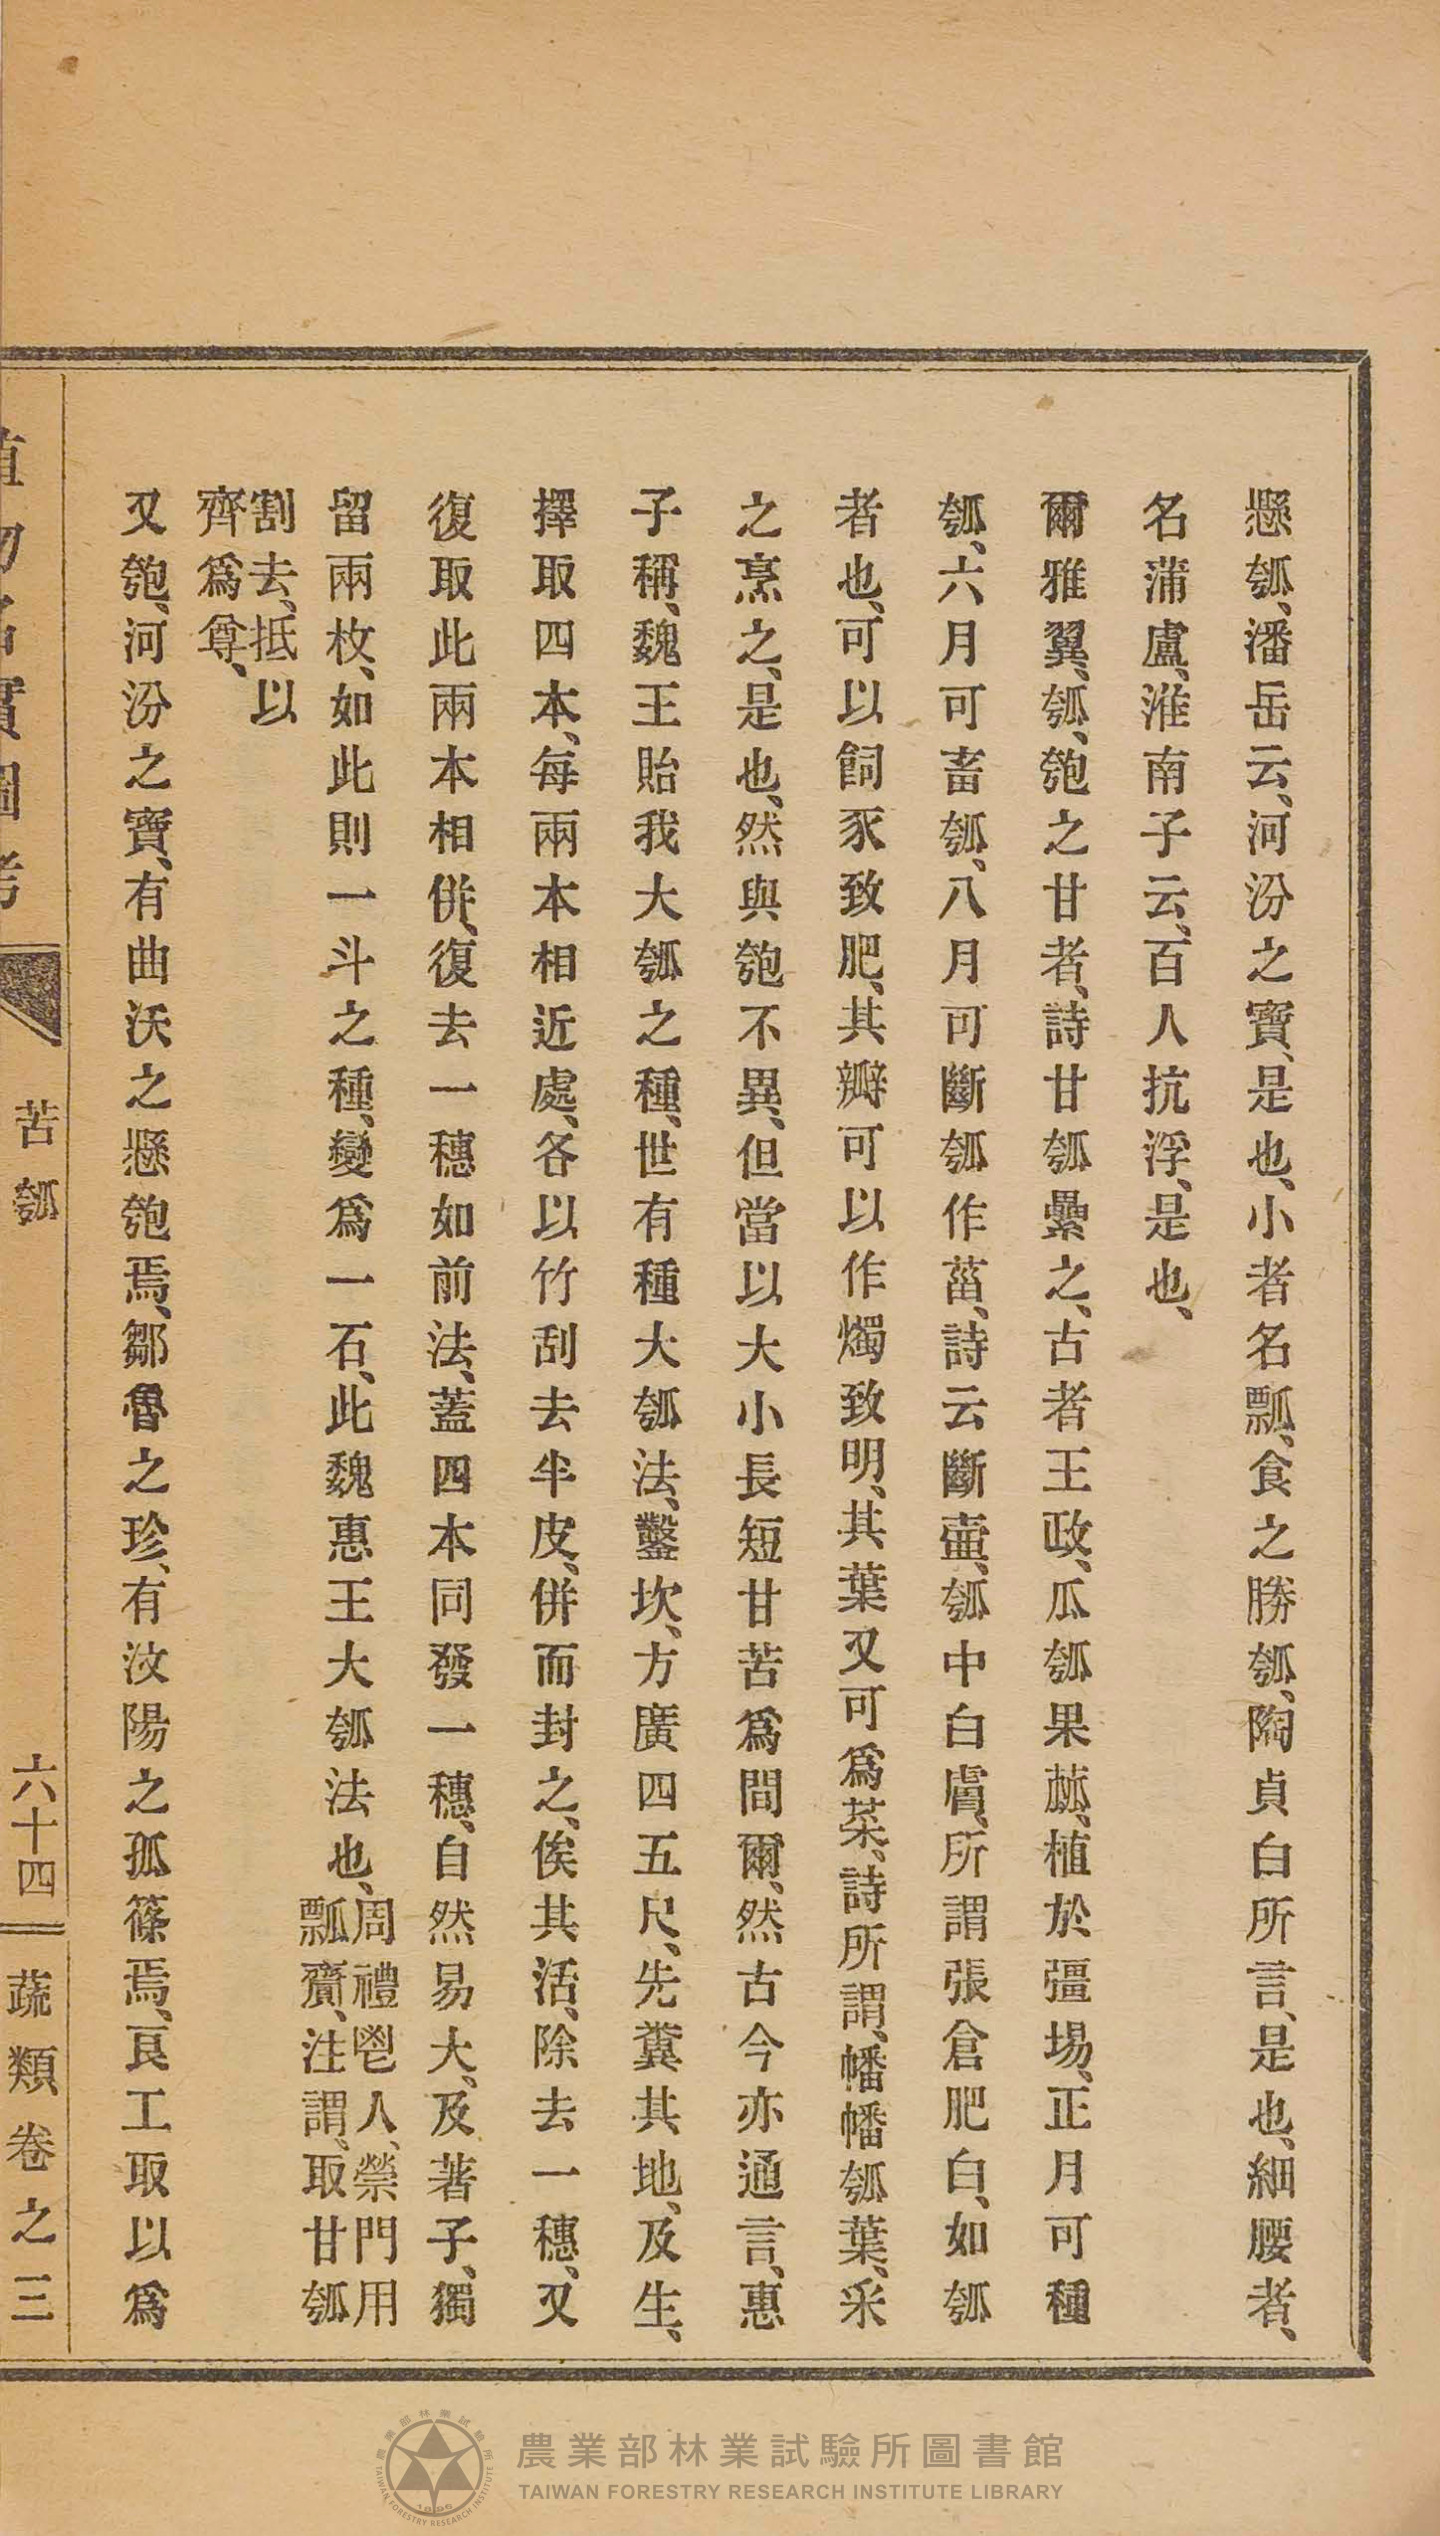 懸瓠、潘岳云、河汾之寶、是也、小者名瓢、食之勝瓠、陶貞白所言、是也、細腰者、
名蒲盧、淮南子云、百人抗浮、是也、
爾雅翼、瓠、匏之甘者、詩甘瓠纍之、古者王政、瓜瓠果蓏、植於疆場、正月可種
瓠、六月可畜瓠、八月可斷瓠作菑、詩云斷壷、瓠中白膚、所謂張倉肥白、如瓠
者也、可以飼豕致肥、其瓣可以作燭致明、其葉又可爲菜、詩所謂、幡幡瓠葉、采
之烹之、是也、然與匏不異、但當以大小長短甘苦爲間爾、然古今亦通言、惠
子稱、魏王貽我大瓠之種、世有種大瓠法、鑿坎、方廣四五尺、先糞其地、及生、
擇取四本、每兩本相近處、各以竹刮去半皮、併而封之、俟其活、除去一穗、又
復取此兩本相併、復去一穗如前法、蓋四本同發一穗、自然易大、及著子、獨
留兩枚、如此則一斗之種、變爲一石、此魏惠王大瓠法也、周禮鬯人、禜門用
瓢齎、注謂、取甘瓠
割去、抵以
齊爲尊、
又匏、河汾之寶、有曲沃之懸匏焉、鄒魯之珍、有汶陽之孤篠焉、良工取以爲
植物名實圖考
苦瓠
六十四
蔬類卷之三
農業部林業試驗所圖書館
TAIWAN FORESTRY RESEARCH INSTITUTE LIBRARY
農業部林業試驗所
TAIWAN FORESTRY RESEARCH INSTITUTE
1895